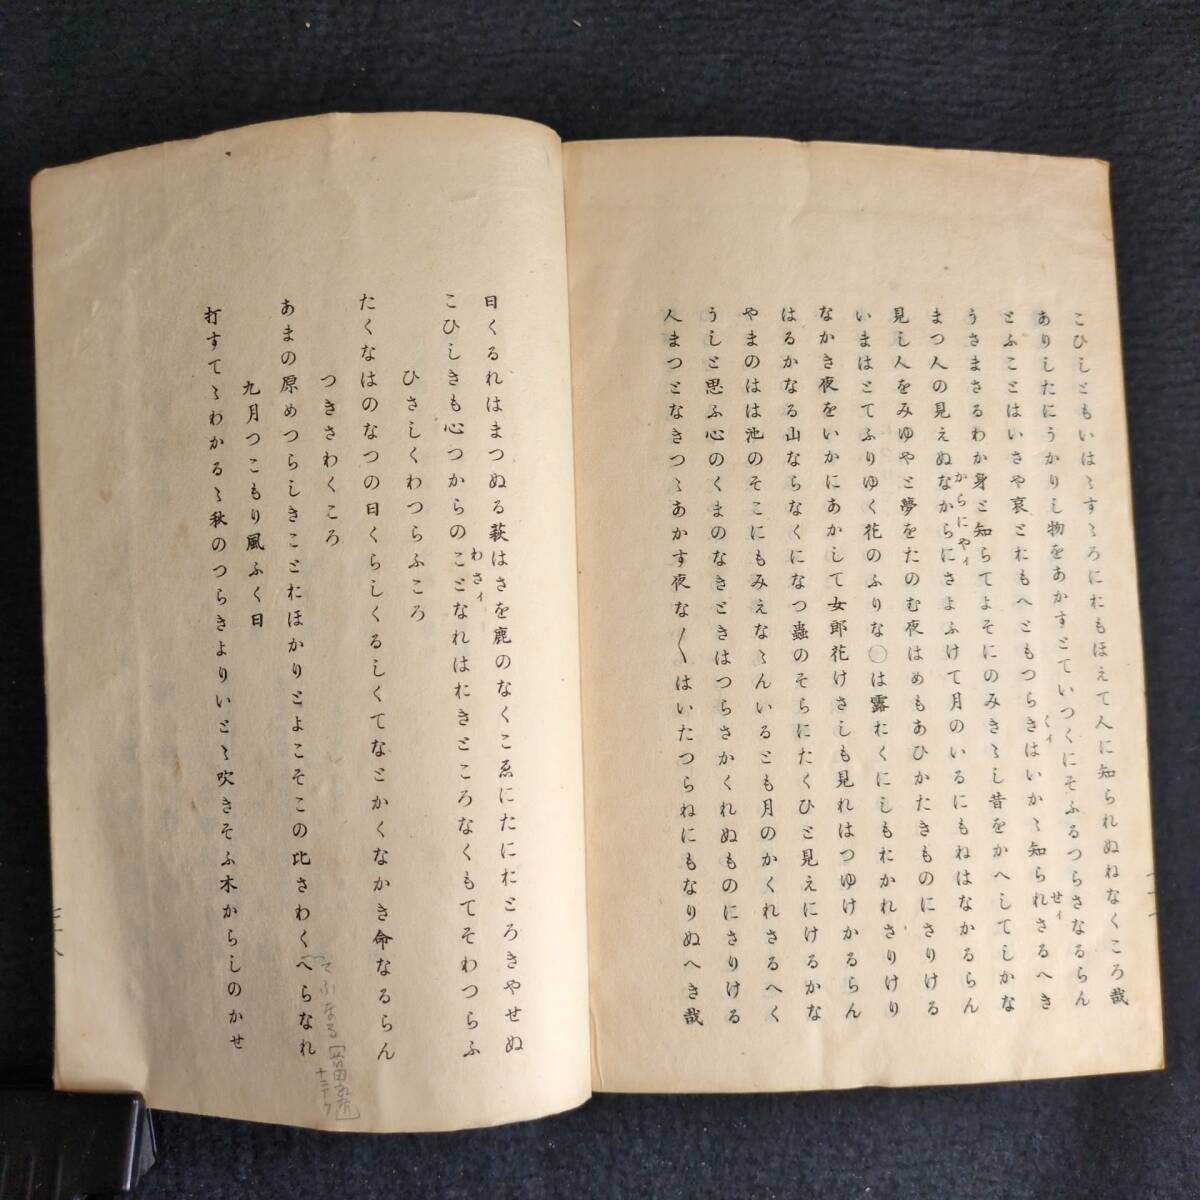 こひしともいはゝすゝろにおもほえて人に知られぬねなくころ哉
ありしたにうかりし物をあかすとていつくにそふるつらさなるらん
せイ
とふことはいさや哀とおもへともつらきはいかゝ知られさるへき
くイ
うさまさるわか身と知らてよそにのみきゝし昔をかへしてしかな
からにやイ
まつ人の見えぬなからにさよふけて月のいるにもねはなかるらん
見し人をみゆやと夢をたのむ夜はめもあひかたきものにさりける
いまはとてふりゆく花のふりな〇は露おくにしもおかれさりけり
なかき夜をいかにあかして女郎花けさしも見れはつゆけかるらん
はるかなる山ならなくになつ蟲のそらにたくひと見えにけるかな
やまのはは池のそこにもみえなゝんいるとも月のかくれさるへく
うしと思ふ心のくまのなきときはつらさかくれぬものにさりける
人まつとなきつゝあかす夜な〱はいたつらねにもなりぬへき哉
日くるれはまつぬる萩はさを鹿のなくこゑにたにおとろきやせぬ
わさイ
こひしきも心つからのことなれはおきところなくもてそわつらふ
ひさしくわつらふころ
たくなはのなつの日くらしくるしくてなとかくなかき命なるらん
つきさわくころ
あまの原めつらしきことおほかりとよこそこの比さわくへらなれ
てふなる
九月つこもり風ふく日
打すてゝわかるゝ秋のつらきよりいとゝ吹きそふ木からしのかせ